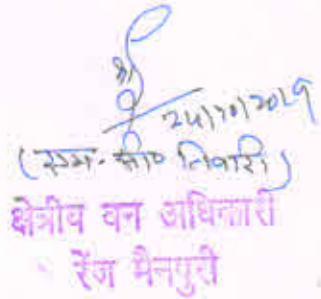 24/10/2019
(एम.सी० तिवारी)
क्षेत्रीय वन अधिकारी
रेंज मैनपुरी